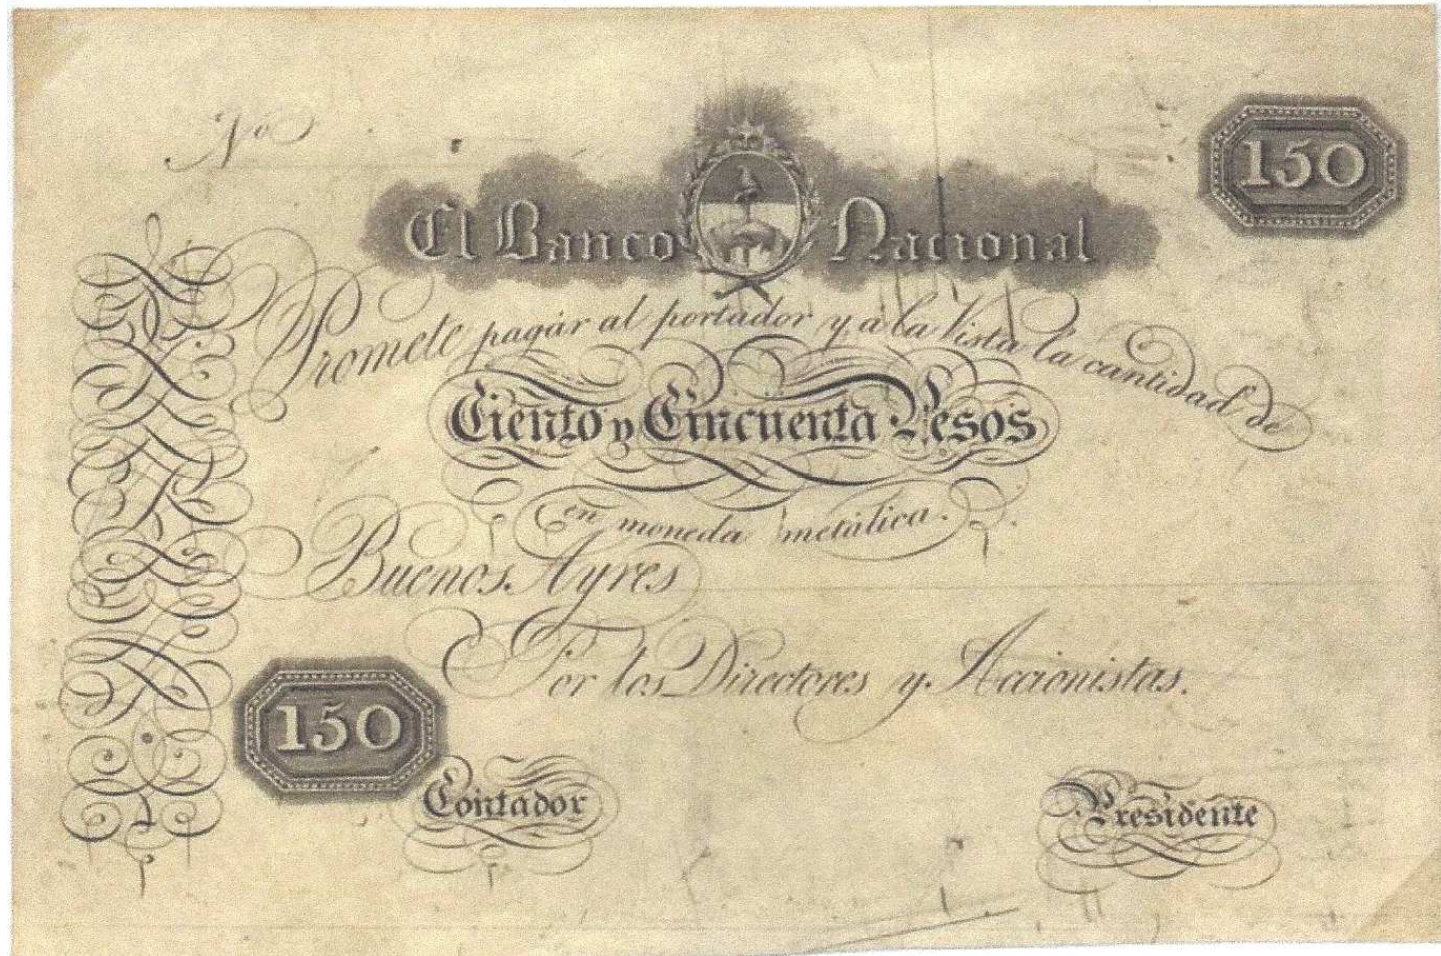 No
150
El Banco Nacional
Promete pagár al portador y á la Vista la cantidad de
Ciento y Cincuenta Pesos
en moneda metálica.
Buenos Ayres
Por los Directores y Accionistas.
150
Contador
Presidente